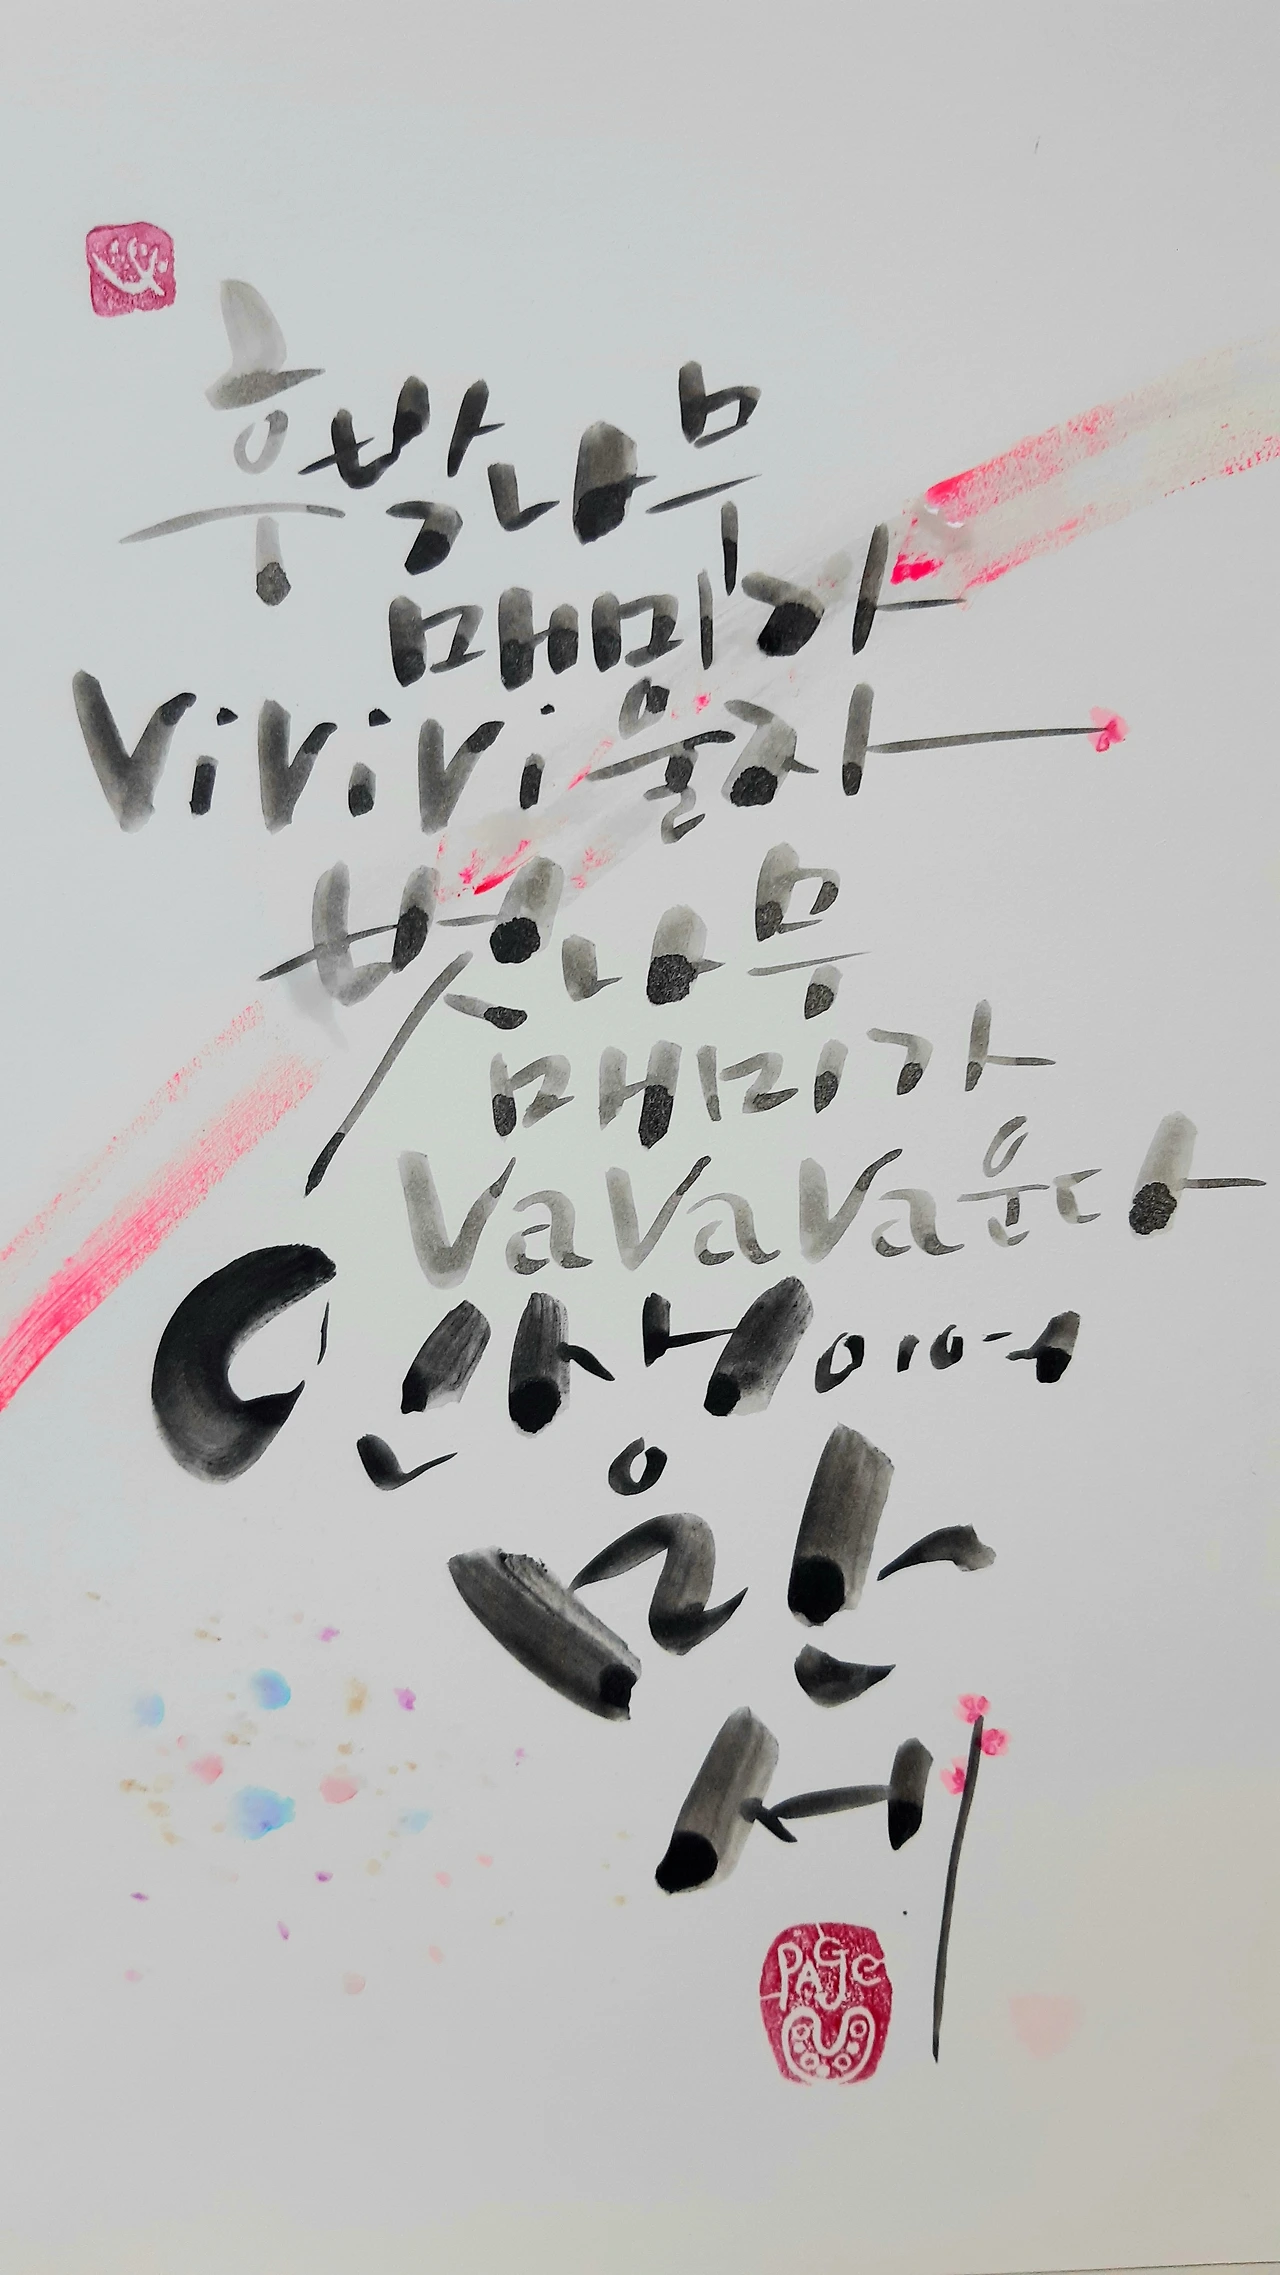 후박나무
매미가
ViViVi 울라
벚나무
매미가
VaVaVa 운다
인생이여
만
세
PAGE